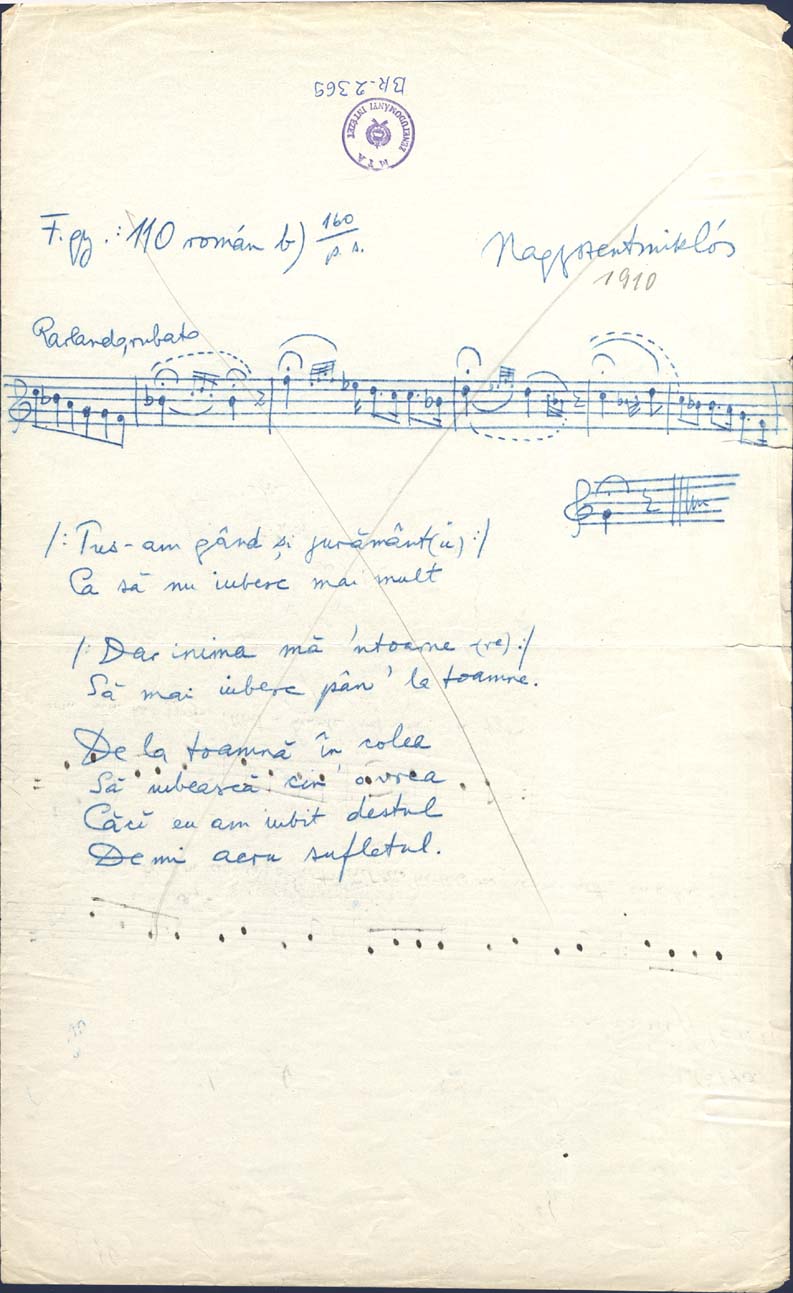 BR-2365
ZENETUDOMÁNYI INTÉZET
MTA
F. gy.: 110 román b) 160/p. s.
Nagyszentmiklós
1910
Parlando, rubato
/: Pus-am gând și jurământ(ŭ) :/
Ca să nu iubesc mai mult
/: Dar inima mă 'ntoarne (re) :/
Să mai iubesc pân' la toamne.
De la toamnă în colea
Să iubească cin' o vrea
Căci eu am iubit destul
De mi acru sufletul.